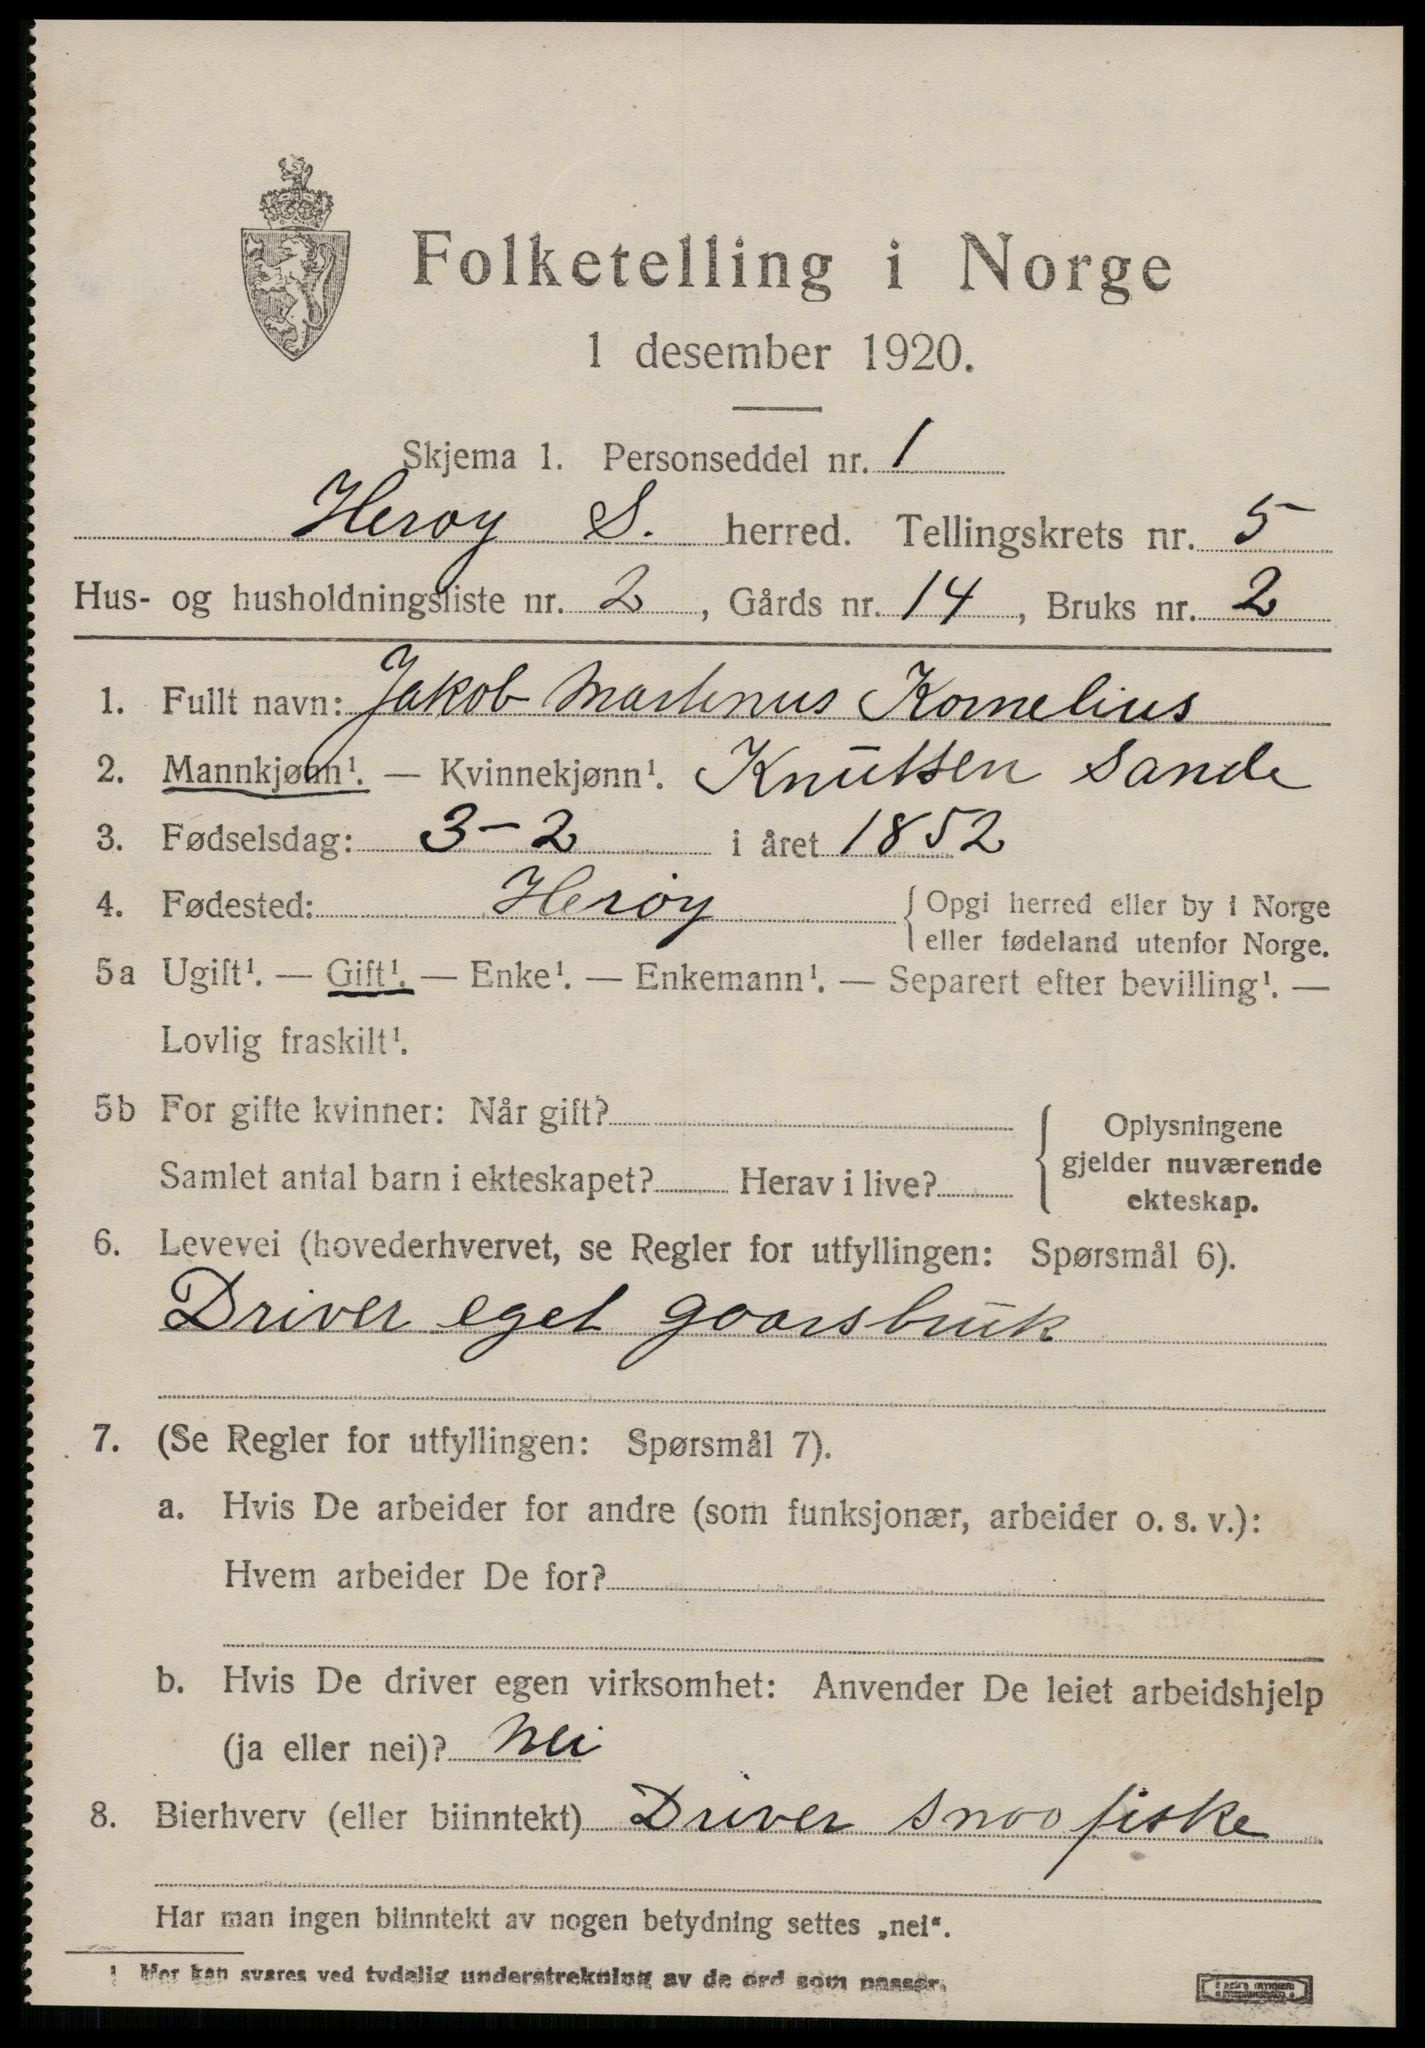 Folketelling i Norge
1 desember 1920.
Skjema 1. Personseddel nr. 1
Herøy S. herred. Tellingskrets nr. 5
Hus- og husholdningsliste nr. 2, Gårds nr. 14, Bruks nr. 2
1. Fullt navn: Jakob Martinus Kornelius
2. Mannkjønn¹. — Kvinnekjønn¹. Knutsen Sande
3. Fødselsdag: 3-2 i året 1852
4. Fødested: Herøy { Opgi herred eller by i Norge
eller fødeland utenfor Norge.
5a Ugift¹. — Gift¹. — Enke¹. — Enkemann¹. — Separert efter bevilling¹. —
Lovlig fraskilt¹.
5b For gifte kvinner: Når gift?
Samlet antal barn i ekteskapet? Herav i live?
{ Oplysningene
gjelder nuværende
ekteskap.
6. Levevei (hovederhvervet, se Regler for utfyllingen: Spørsmål 6).
Driver eget gaarsbruk
7. (Se Regler for utfyllingen: Spørsmål 7).
a. Hvis De arbeider for andre (som funksjonær, arbeider o. s. v.):
Hvem arbeider De for?
b. Hvis De driver egen virksomhet: Anvender De leiet arbeidshjelp
(ja eller nei)? Nei
8. Bierhverv (eller biinntekt) Driver smaafiske
Har man ingen biinntekt av nogen betydning settes „nei“.
¹ Her kan svares ved tydelig understrekning av de ord som passer.